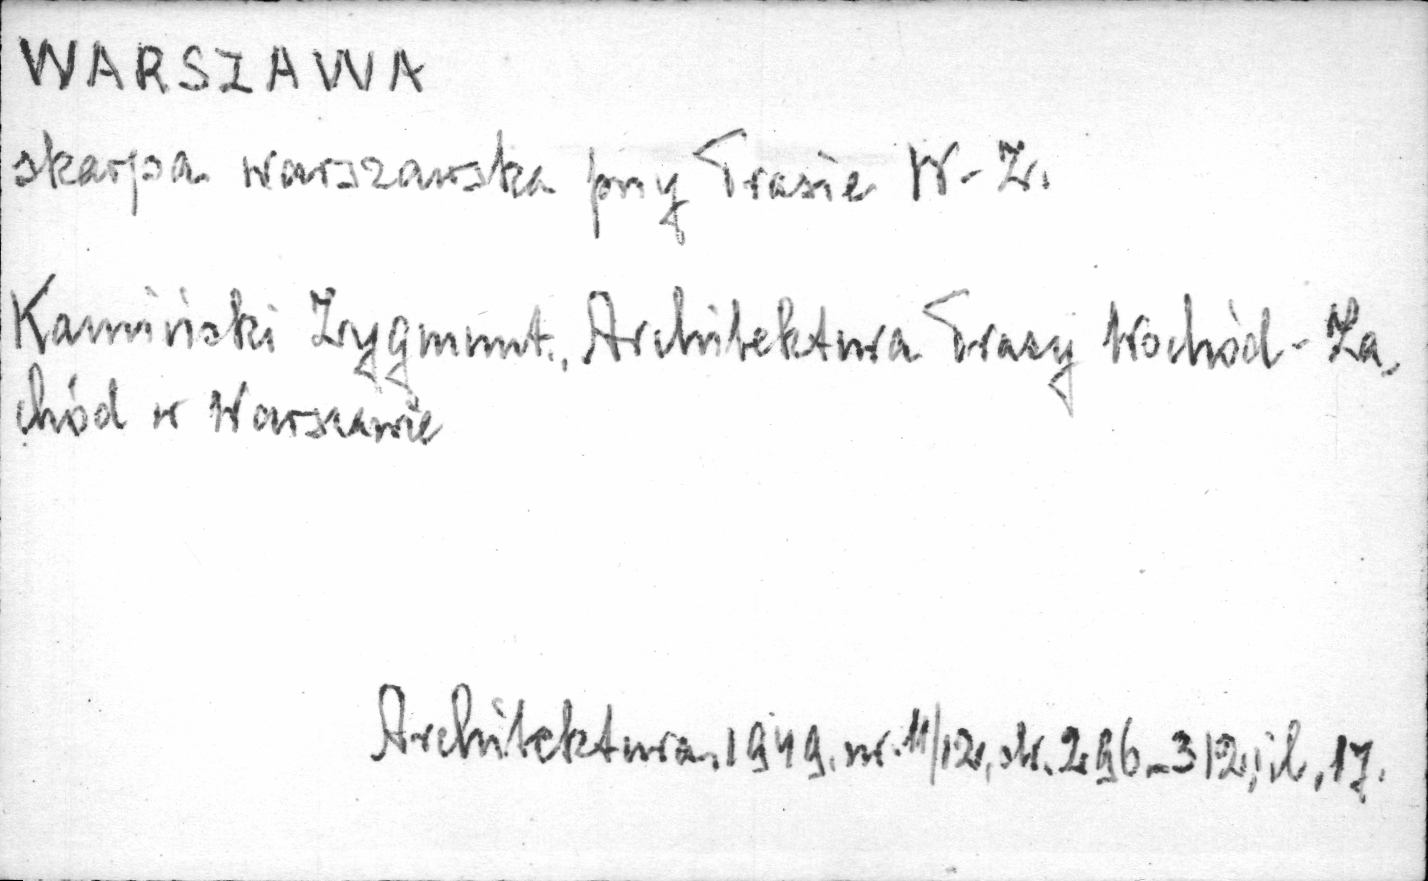 WARSZAWA
skarpa warszawska przy Trasie W-Z.
Kamiński Zygmunt, Architektura Trasy Wschód-Za,
chód w Warszawie
Architektura.1949.nr.11/12,str.296-312,il,17.